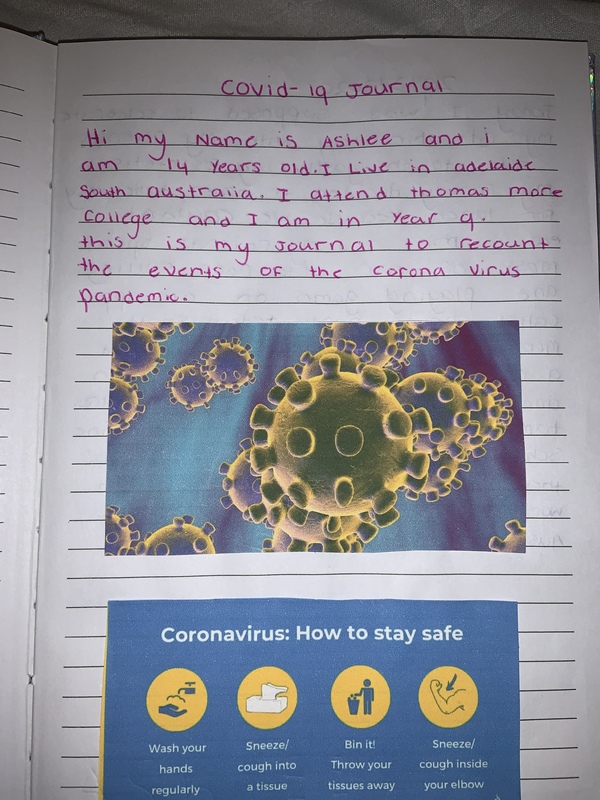 Covid-19 Journal
Hi my Name is Ashlee and i
am 14 years old. I Live in adelaide
South australia. I attend thomas more
college and I am in year 9.
this is my Journal to recount
the events OF the corona virus
pandemic.
Coronavirus: How to stay safe
Wash your hands regularly
Sneeze/ cough into a tissue
Bin it! Throw your tissues away
Sneeze/ cough inside your elbow